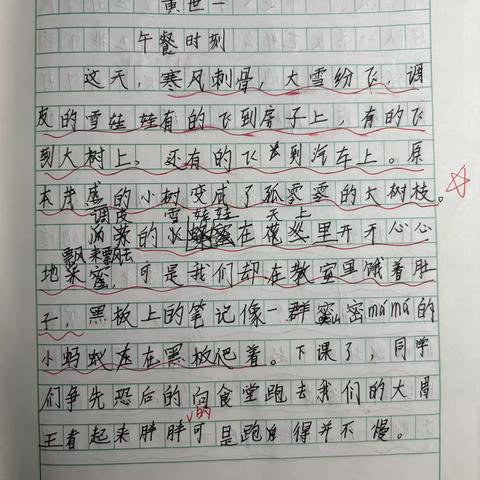 黄世一
午餐时刻
这天，寒风刺骨，大雪纷飞，调
皮的雪娃娃有的飞到房子上，有的飞
到大树上，还有的飞到汽车上。原
本茂盛的小树变成了孤零零的大树枝。
调皮 雪娃娃 天上
的 在 里开开心心
飘来飘去
地采蜜，可是我们却在教室里饿着肚
子，黑板上的笔记像一群密密mámá的
小蚂蚁在黑板爬着。下课了，同学
们争先恐后的向食堂跑去我们的大胃
的
王看起来胖胖可是跑得并不慢。